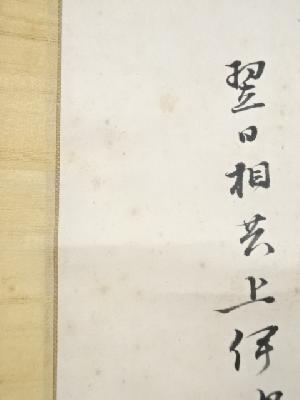 翌日相共上伊